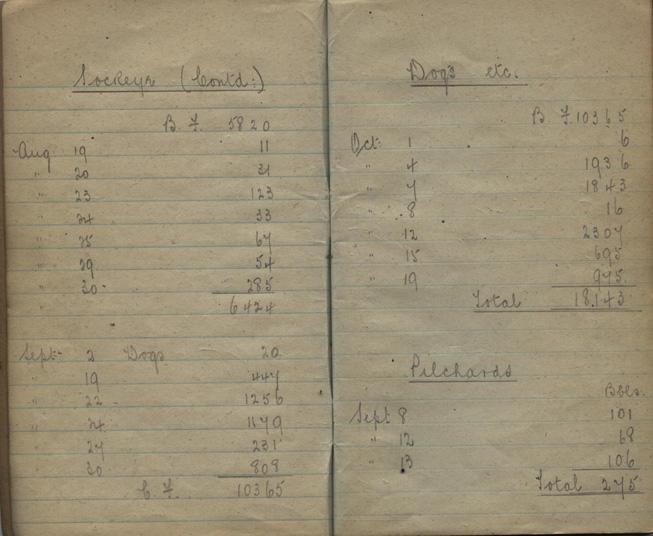 Sockeye (Contd:)
B F. 5820
Aug 19 11
" 20 31
" 23 123
" 24 33
" 25 67
" 29 54
" 30 285
" 6424
Sept 2 Dogs 20
" 19 447
" 22 1256
" 24 1179
" 27 231
30 808
C F. 10365
Dogs etc.
B F. 10365
Oct: 1 6
" 4 1936
" 7 1843
" 8 16
" 12 2307
" 15 695
" 19 975
Total 18,143
Pilchards
Bbls.
Sept 8 101
" 12 68
" 13 106
Total 275